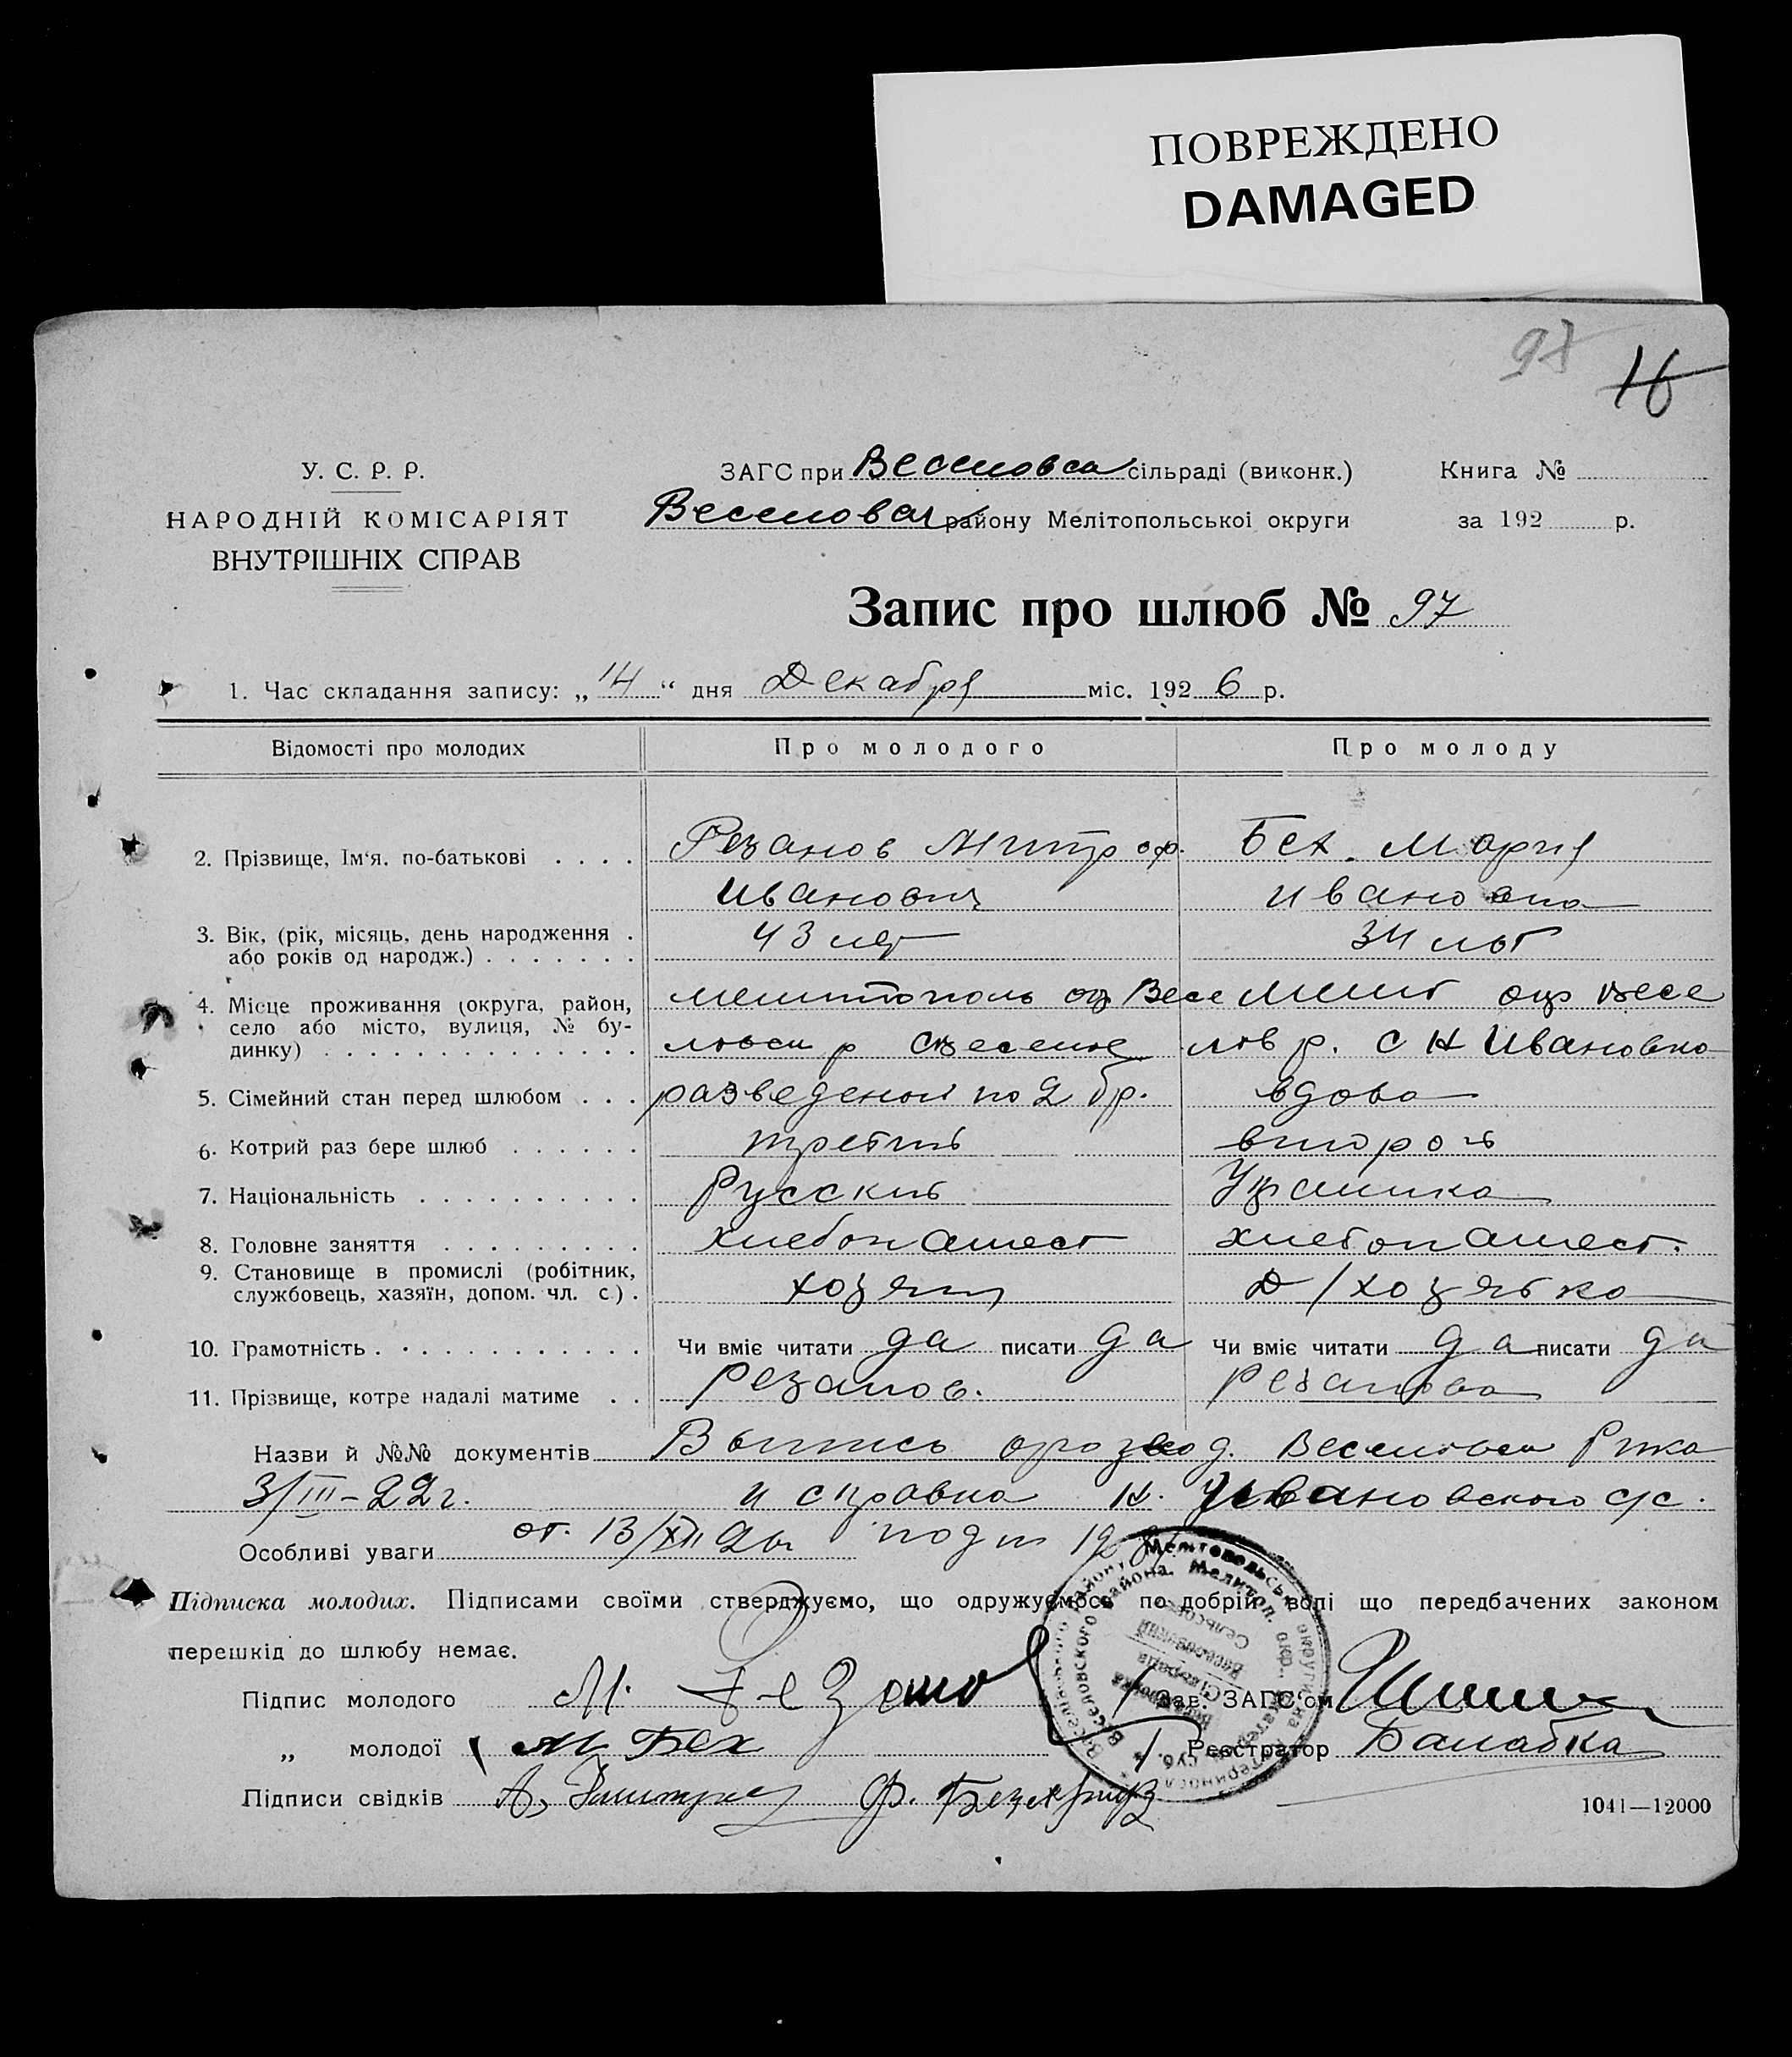 ПОВРЕЖДЕНО
DAMAGED
97 16
У. С. Р. Р.
НАРОДНІЙ КОМІСАРІЯТ
ВНУТРІШНІХ СПРАВ
ЗАГС при Веселовск сільраді (виконк.) Книга №
району Мелітопольської округи за 192 р.
Запис про шлюб № 97
1. Час складання запису: „14“ дня Декабря міс. 1926 р.
Відомості про молодих Про молодого Про молоду
2. Прізвище, Ім'я. по-батькові Резанов Митроф. Бех. Мария
Иванович Ивановна
3. Вік, (рік, місяць, день народження 43 лет 34 лет
або років од народж.)
4. Місце проживання (округа, район, Мелитополь окр Весе Мелит окр Весе
село або місто, вулиця, № бу- ловск р с Веселое лов р. с Н Ивановка
динку)
5. Сімейний стан перед шлюбом разведеной по 2 бр. вдова
6. Котрий раз бере шлюб третий второй
7. Національність Русский Украинка
8. Головне заняття хлебопашест хлебопашест.
9. Становище в промислі (робітник, хозяин д/хозяйка
службовець, хазяїн, допом. чл. с.)
10. Грамотність Чи вміє читати да писати да Чи вміє читати да писати да
11. Прізвище, котре надалі матиме Резанов. Резанова
Назви й №№ документів Выпись о развод. Веселовск Рика
3/III-22г. и справка Н. Ивановского с/с.
Особливі уваги от 13/XII 26г
Підписка молодих. Підписами своїми стверджуємо, що одружуємось по добрій волі що передбачених законом
перешкід до шлюбу немає.
Підпис молодого М. Резанов Зав. ЗАГС'ом
„ молодої М Бех Реєстратор Балабка
Підписи свідків А. Ф.
1041—12000
Веселовского района. Мелитоп. окр.